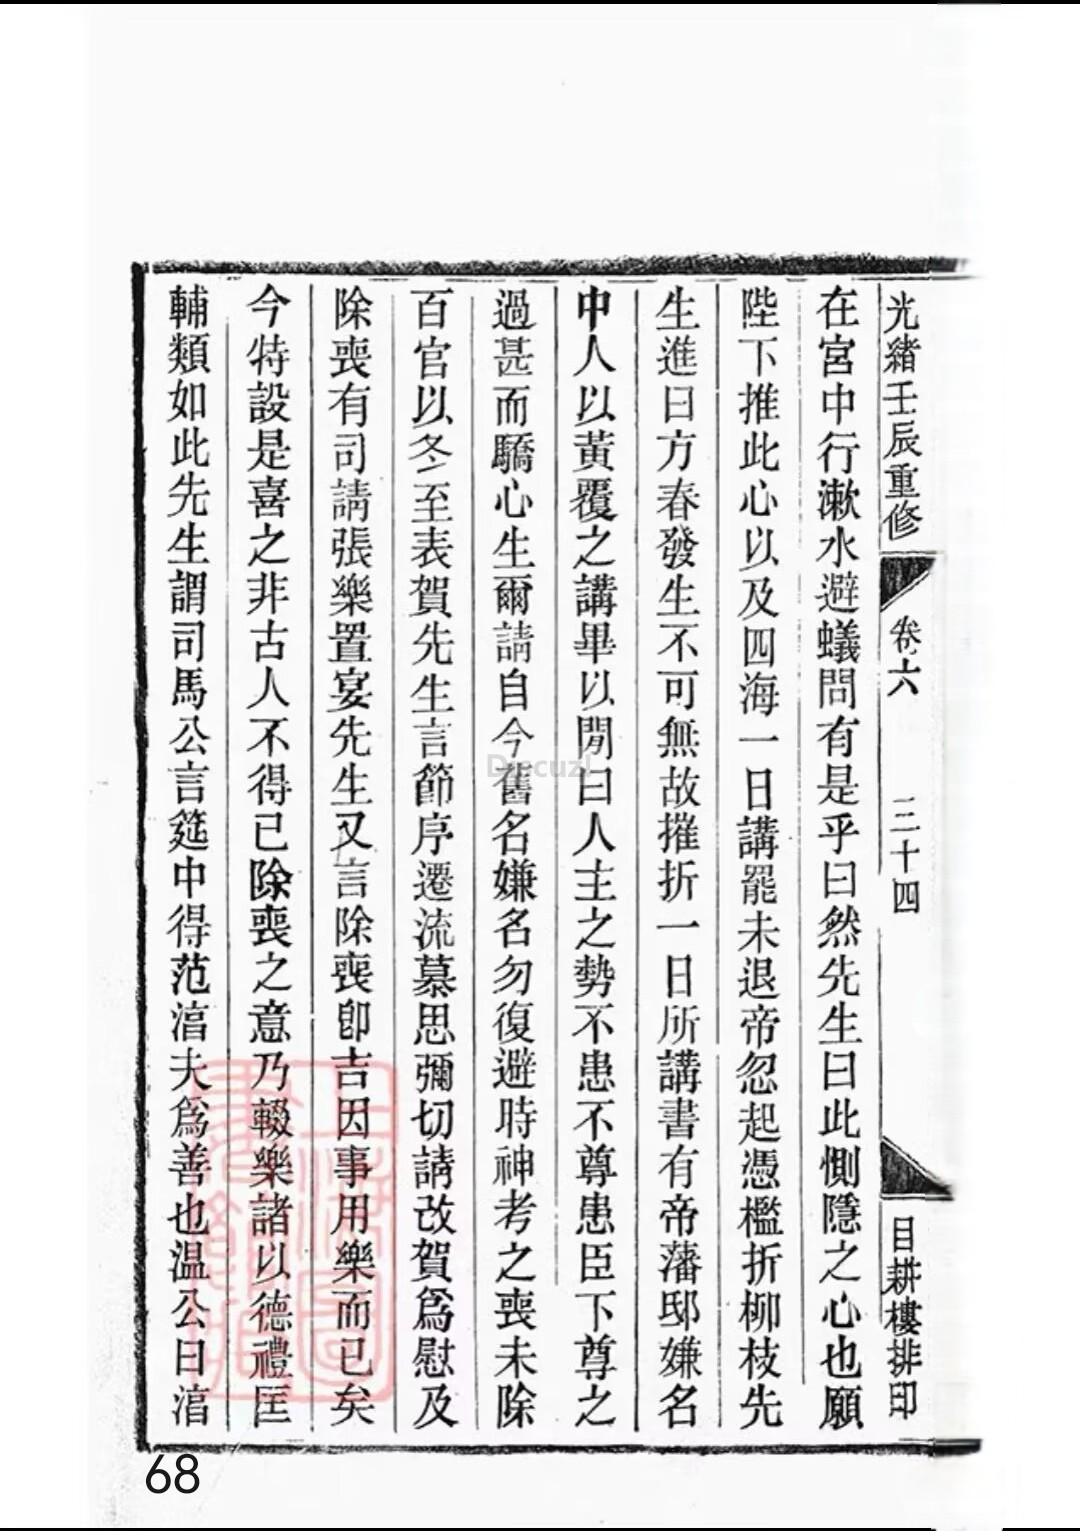 光緒壬辰重修
卷六
二十四
目耕樓排印
在宮中行漱水避蟻問有是乎曰然先生曰此惻隱之心也願
陛下推此心以及四海一日講罷未退帝忽起憑檻折柳枝先
生進曰方春發生不可無故摧折一日所講書有帝藩邸嫌名
中人以黃覆之講畢以閒曰人主之勢不患不尊患臣下尊之
過甚而驕心生爾請自今舊名嫌名勿復避時神考之喪未除
百官以冬至表賀先生言節序遷流慕思彌切請改賀爲慰及
除喪有司請張樂置宴先生又言除喪卽吉因事用樂而已矣
今特設是喜之非古人不得已除喪之意乃輟樂諸以德禮匡
輔類如此先生謂司馬公言筵中得范湻夫爲善也温公曰湻
Drecuzl
68